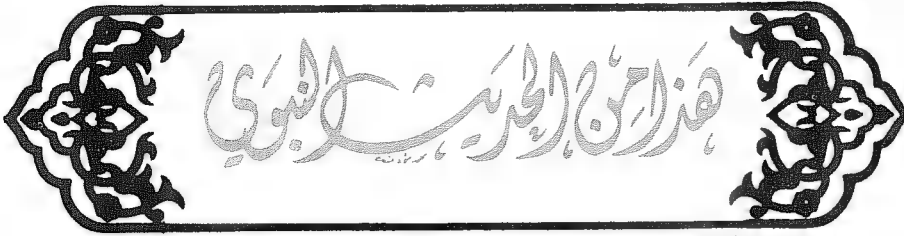 هَذَا مِنَ الْحَدِيثِ النَّبَوِيِّ